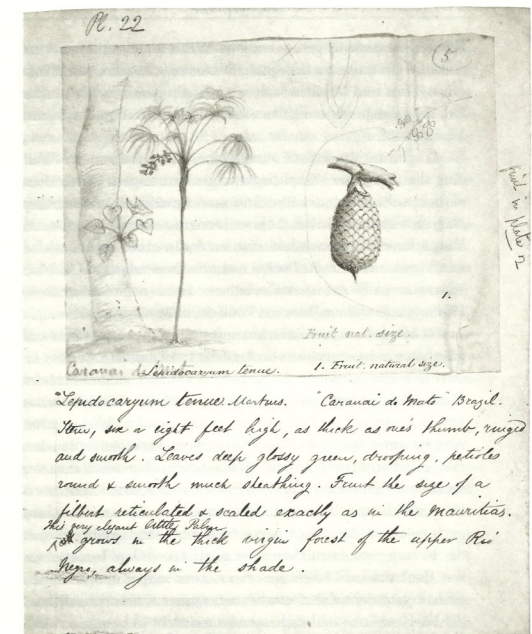 Pl. 22
5
1.
Fruit nat. size.
Caranai de Lepidocaryum tenue.
1. Fruit. natural size.
"Lepidocaryum tenue Martius. "Caranai do Mato" Brazil.
Stem, six a eight feet high, as thick as one's thumb, ringed
and smooth. Leaves deep glossy green, drooping, petioles
round & smooth much sheathing. Fruit the size of a
filbert reticulated & scaled exactly as in the Mauritias.
This very elegant little Palm
It grows in the thick virgin forest of the upper Rio
Negro, always in the shade.
in plate